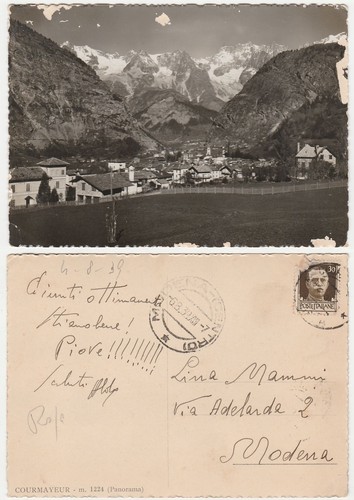 4-8-39
Giunti ottimamente
stiamo bene!
Piove!!!!!!!!!
Saluti
Lina Mammi
Via Adelarda 2
Modena
30
POSTE ITALIANE
COURMAYEUR - m. 1224 (Panorama)